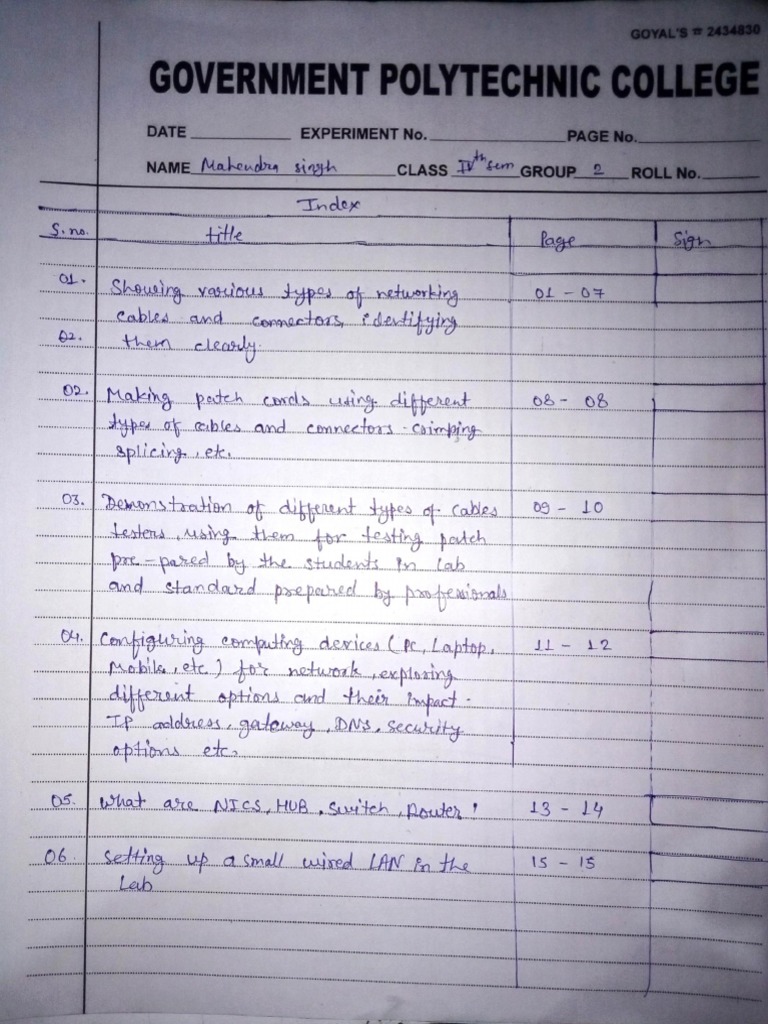 GOYAL'S # 2434830
GOVERNMENT POLYTECHNIC COLLEGE
DATE EXPERIMENT No. PAGE No.
NAME Mahendra singh CLASS IVth sem GROUP 2 ROLL No.
Index
S.no. title Page Sign
01. Showing various types of networking 01 - 07
cables and connectors, identifying
02. them clearly.
02. Making patch cords using different 08 - 08
types of cables and connectors - crimping
splicing, etc.
03. Demonstration of different types of cables 09 - 10
testers, using them for testing patch
pre-pared by the students in Lab
and standard prepared by professionals
04. Configuring computing devices (PC, Laptop, 11 - 12
Mobile, etc) for network, exploring
different options and their impact -
IP address, gateway, DNS, security
options etc.
05. What are NICS, HUB, Switch, Router! 13 - 14
06. Setting up a small wired LAN in the 15 - 15
Lab